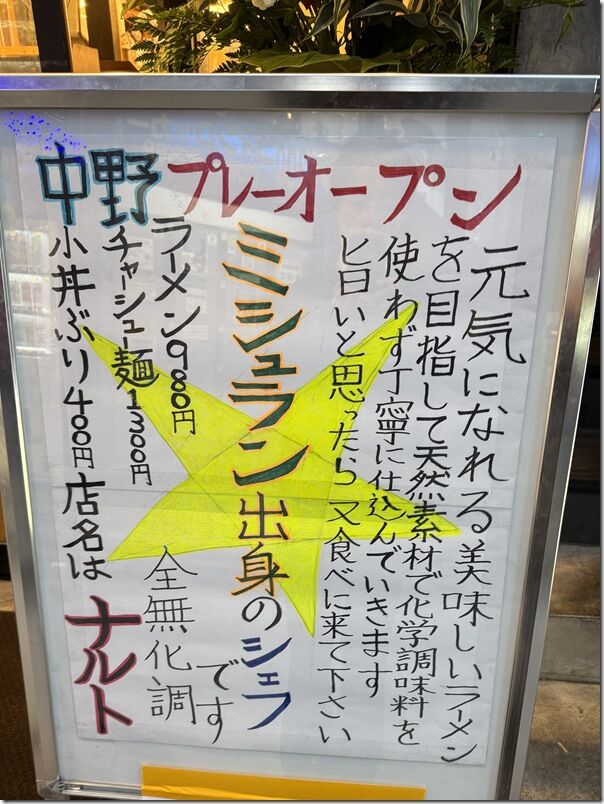 中野プレーオープン
元気になれる美味しいラーメン
を目指して天然素材で化学調味料を
使わず丁寧に仕込んでいきます
旨いと思ったら又食べに来て下さい
ミシュラン出身のシェフ
です
ラーメン980円
全無化調
チャーシュー麺1300円
小丼ぶり400円 店名は
ナルト